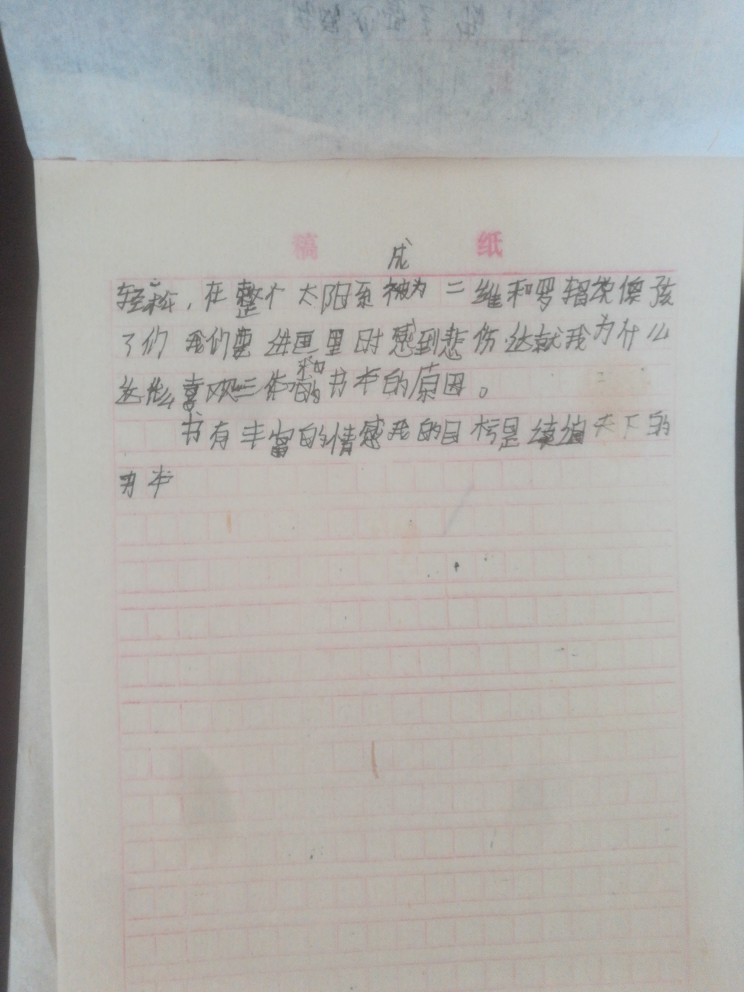 稿 纸
成
轻松，在整个太阳系被为二维和罗辑说傻孩
了们 我们要进画里时感到悲伤 这就我为什么
和
这么喜欢三体的书本的原因。
书有丰富的情感我的目标是续编天下的
书本